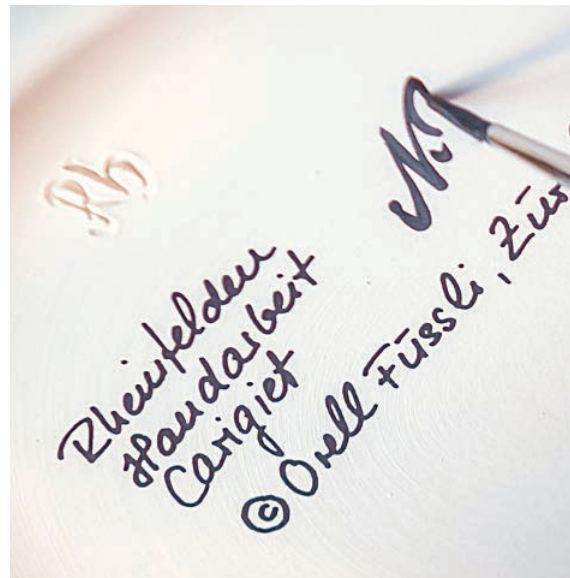 Rh
Rheinfelden
Handarbeit
Carigiet
© Orell Füssli, Zür